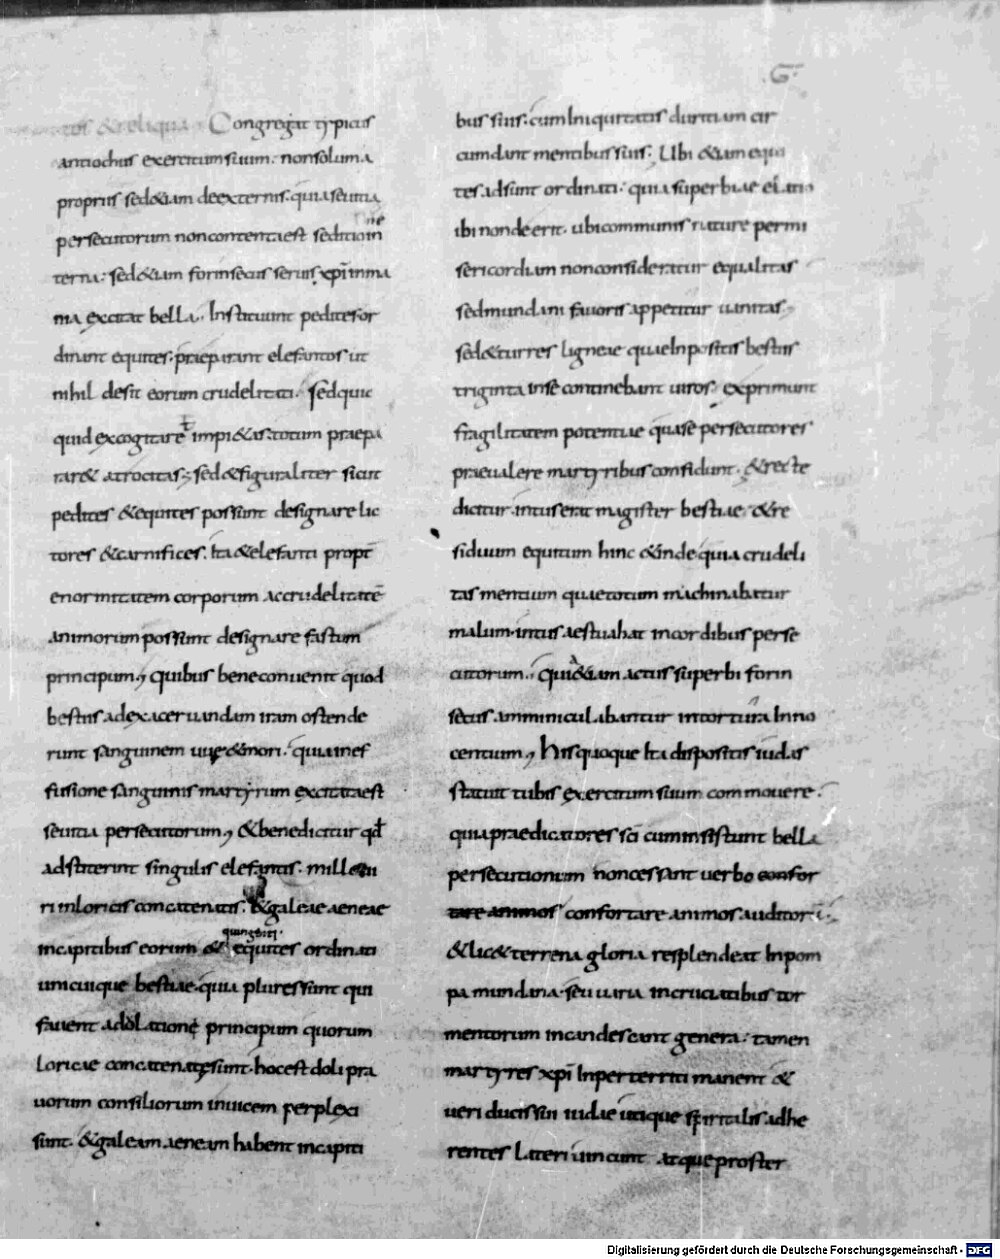 G
tos & reliqua Congregat typicus
antiochus exercitum suum. non solum a
propriis sed & iam de externis. quia seuitia
persecutorum non contenta est seditione in
terna. sed & iam forinsecus seruis xpi inma
nia excitat bella. Instituunt pedites or
dinant equites. praeparant elefantos ut
nihil desit eorum crudelitati. sed quic
quid excogitaret impi&as. totum praepa
rar& atrocitas; sed & figuraliter sicut
pedites & equites possunt designare lic
tores & carnifices. Ita & elefanti propt
enormitatem corporum ac crudelitatē
animorum possunt designare fastum
principum; quibus bene conuenit quod
bestiis ad exaceruandam iram ostende
runt sanguinem uuę & mori. quia in ef
fusione sanguinis martyrum excitata est
seuitia persecutorum; & bene dicitur qđ
adstiterint singulis elefantis. mille ui
ri in loricis concatenatis. & galeae aeneae
in capitibus eorum & quingenti equites ordinati
unicuique bestiae. quia plures sunt qui
fauent adolationę principum quorum
loricae concatenatę sunt. hoc est doli pra
uorum consiliorum inuicem perplexi
sunt. & galeam aeneam habent in capiti
bus suis. cum Iniquitatis duritiam cir
cumdant mentibus suis. Ubi & iam equi
tes adsunt ordinati. quia superbiae elatio
ibi non deerit. ubi communis naturę permi
sericordiam non consideratur equalitas
sed mundani fauoris appetitur uanitas;
sed & turres ligneae quae In positis bestiis
triginta in se continebant uiros. exprimunt
fragilitatem potentiae qua se persecutores
praeualere martyribus confidunt. & recte
dicitur. intus erat magister bestiae. & re
siduum equitum hinc & inde quia crudeli
tas mentium quae totum machinabatur
malum. intus aestuabat in cordibus perse
cutorum. qui & iam actus superbi forin
secus amminiculabantur in tortura Inno
centium; his quoque Ita dispositis iudas
statuit tubis exercitum suum commouere.
quia praedicatores sci cum insistunt bella
persecutionum non cessant uerbo confor
tare animos confortare animos auditorū.
& lic& terrena gloria resplendeat In pom
pa mundana. seu uaria in cruciatibus tor
mentorum incandescant genera. tamen
martyres xpi Inperterriti manent &
ueri ducis sui iudae utique spiritalis adhe
rentes lateri uincunt atque proster
Digitalisierung gefördert durch die Deutsche Forschungsgemeinschaft - DFG